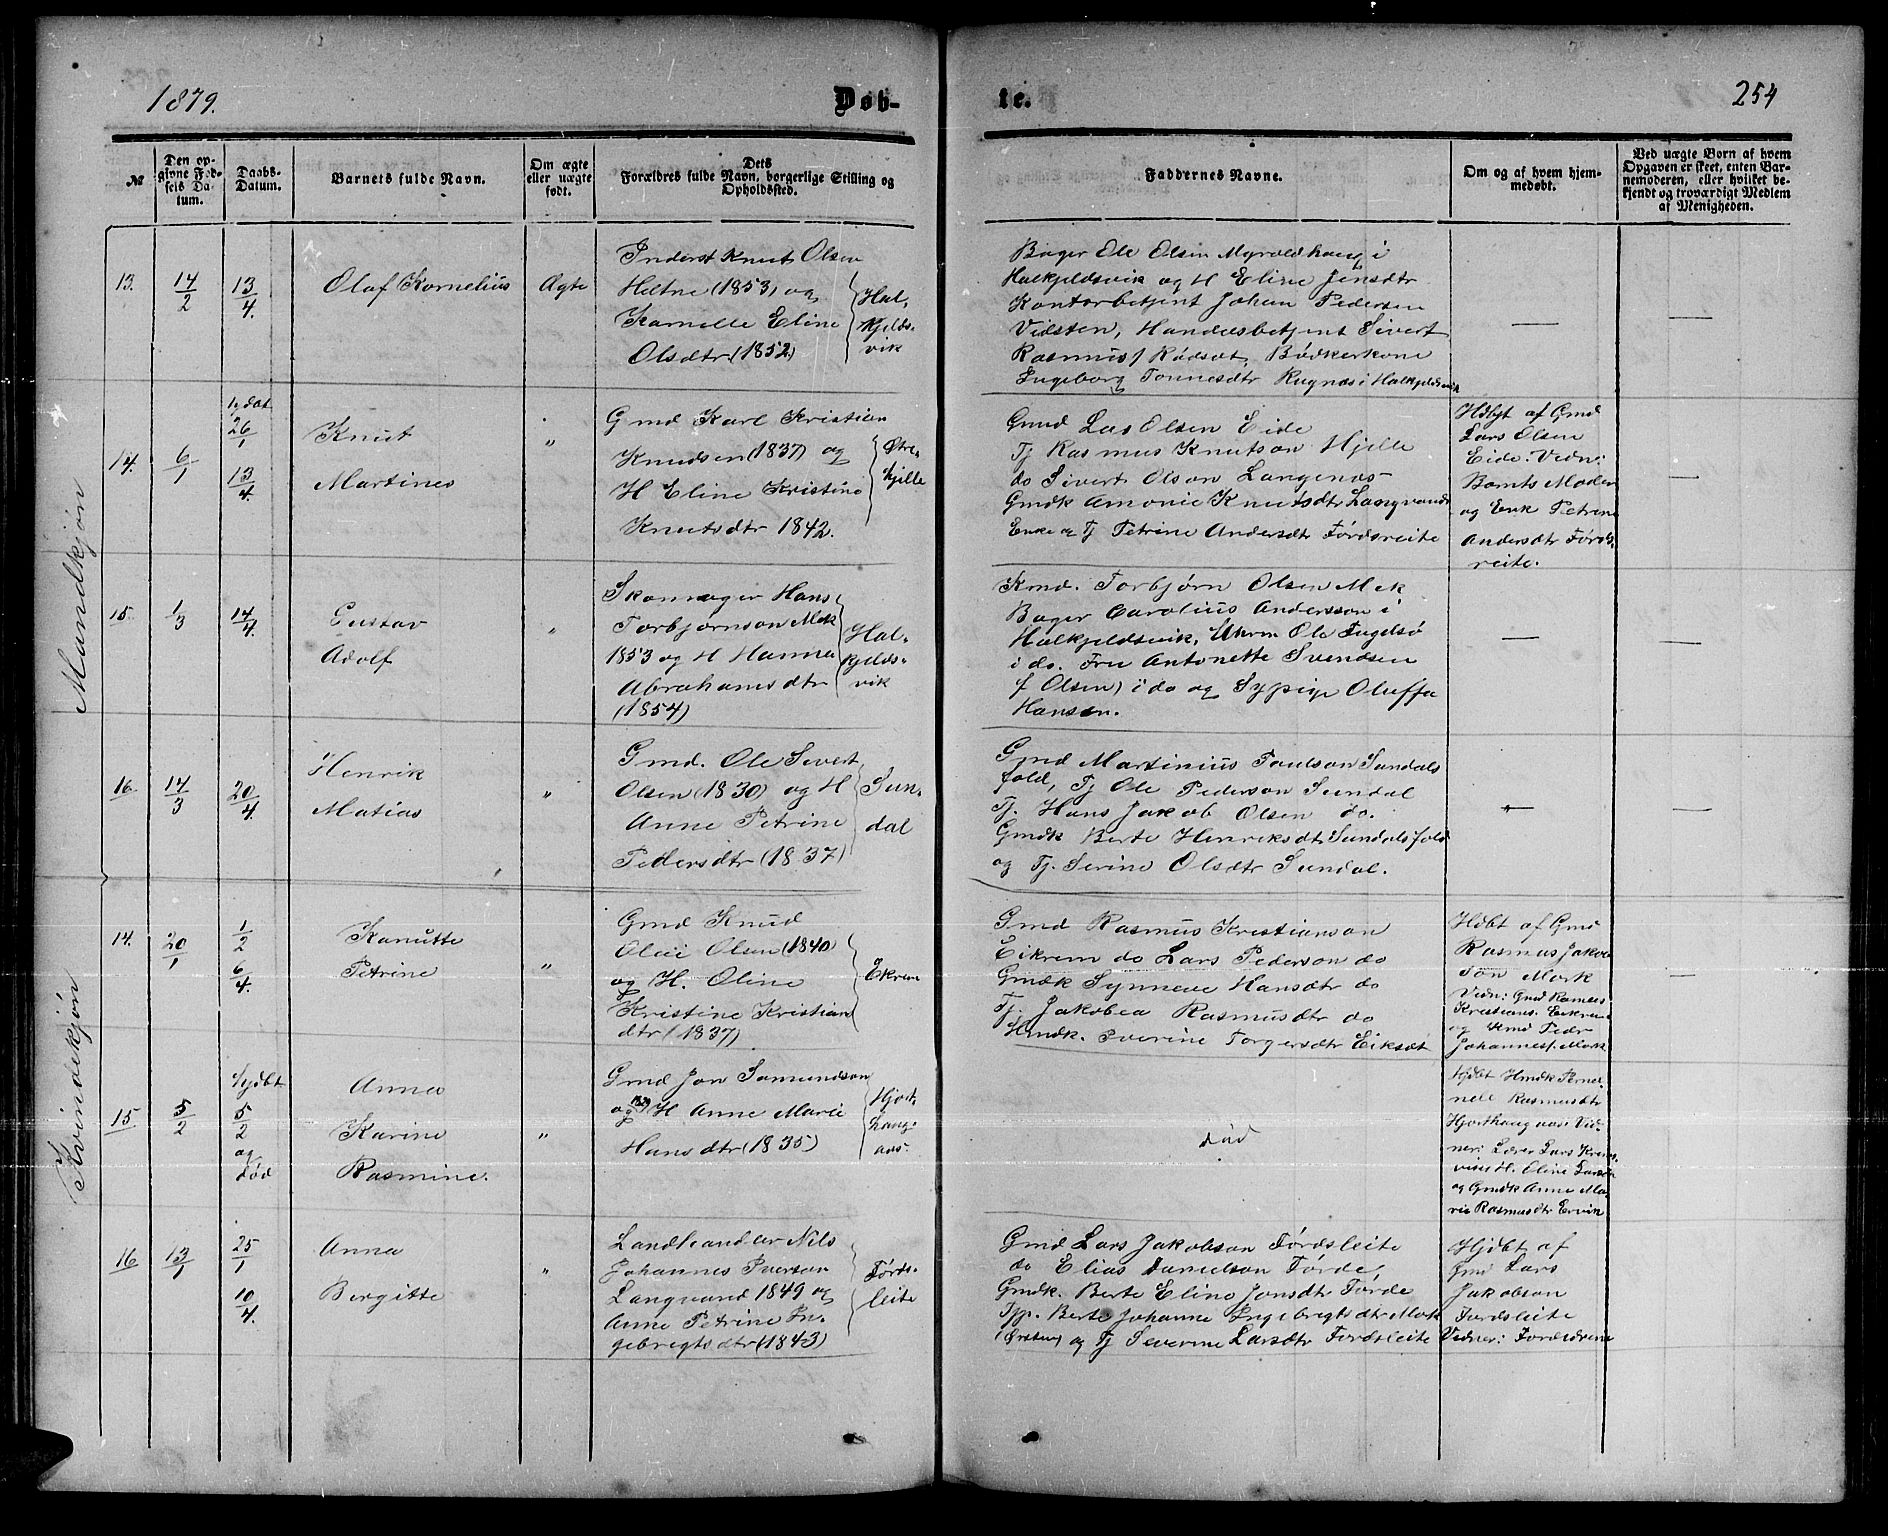 1879.
Døb-
te.
254
№
Den opgivne Fødsels Datum.
Daabs-Datum.
Barnets fulde Navn.
Om ægte eller uægte født.
Dets Forældres fulde Navn, borgerlige Stilling og Opholdsfted.
Faddernes Navne.
Om og af hvem hjemmedøbt.
Ved uægte Børn af hvem Opgaven er skeet, enten Barnemoderen, eller hvilket bekjendt og troværdigt Medlem af Menigheden.
Mandkjøn
13.
14/2
13/4.
Olaf Kornelius
Ægte
Inderst Knut Olsen
Heltne (1853) og
Kornelle Eline
Olsdtr (1852)
Hal-
kjelds-
vik
Bager Ole Olsen Myrvoldhaug i
Halkjeldsvik og H Eline Jensdtr
Kontorbetjent Johan Pedersen
Vidsten, Handelsbetjent Sivert
Rasmus/ Rødset, Bødkerkone
Ingeborg Tonnesdtr Rugnæs i Halkjeldsvik
—
—
14.
6/1
26/1
13/4.
Knut
Martines
"
Gmd Karl Kristian
Knudsen (1837) og
H Eline Kristine
Knutsdtr 1842.
Øvre-
hjelle
Gmd Lars Olsen Eide
Tj Rasmus Knutson Hjelle
do Sivert Olson Langenes
Gmdk Amonie Knutsdtr Langvand
Enke og Tj Petrine Andersdtr Førdsleite
Hdbt af Gmd
Lars Olsen
Eide. Vidn:
Barnets Moder
og Enk Petrine
Andersdtr Førds-
leite.
—
15.
1/3
14/4.
Gustav
Adolf
"
Skomager Hans
Torbjørnson Mek
1853 og H Hanna
Abrahamsdtr
(1854)
Hal-
kjelds-
vik
Kmd. Torbjørn Olsen Mek
Bager Carolius Andersson i
Halkjeldsvik, Uhrm Ole Fugelsø
i do. Fru Antonette Svendsen
f Olsen) i do og Sypige Oluffa
Hansen.
—
—
16.
14/3
20/4.
Henrik
Matias
"
Gmd. Ole Sivert
Olsen (1830) og H
Anne Petrine
Pedersdtr (1837)
Sun-
dal
Gmd Martinius Paulson Sundals
fold, Tj Ole Pederson Sundal
Tj. Hans Jakob Olsen do.
Gmdk Berte Henriksdtr Sundalsfold
og Tj. Serine Olsdtr Sundal.
—
—
Kvindekjøn
14.
20/1
1/2
6/4.
Kanutte
Petrine
"
Gmd Knud
Olai Olsen (1840)
og H. Oline
Kristine Kristian
dtr (1837)
Ekrem
Gmd Rasmus Kristianson
Eikrem do Lars Pederson do
Gmdk Synneve Hansdtr do
Tj. Jakobea Rasmusdtr do
Gmdk. Iverine Torgersdtr Eiksæt
Hdbt af Gmd
Rasmus Jakob
son Mork
Vidn: Gmd Rasmus
Kristians. Eikrem
og Gmd Peder
Johannes/. Mork
—
15
5/2
Hjdbt
5/2
og
død
Anna
Karine
Rasmine.
"
Gmd Jon Samundson
og H Anne Marie
Hansdtr (1835)
Hjort
haug-
aas.
død
Hjdbt Hmdk Perner-
nele Rasmusdtr
Hjorthaugaas: Vid-
ner: Lærer Lars
H. Oline Larsdtr
og Gmdk Anne Ma-
rie Rasmusdtr Ervin
16
13/1
25/1
10/4.
Anna
Bergitte
"
Landhandler Nils
Johannes Iverson
Langvand 1849 og
Anne Petrine In-
gebregtsdtr (1843)
Førds-
leite
Gmd Lars Jakobson Førdsleite
do Elias Danielson Førde
Gmdk. Berte Eline Jonsdtr Førde
Tjp. Berte Johanne Ingebregtsdtr Mork
(Ørsten) og Tj Severine Larsdtr Førdsleite
Hjdbt af
Gmd Lars
Jakobson
Førdsleite
Vidner: Forældrene